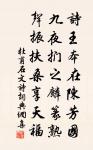 詩王本在陳芳國
九夜捫之麟篆熟
聲振扶桑享天福
杜甫石文詩詞典網集